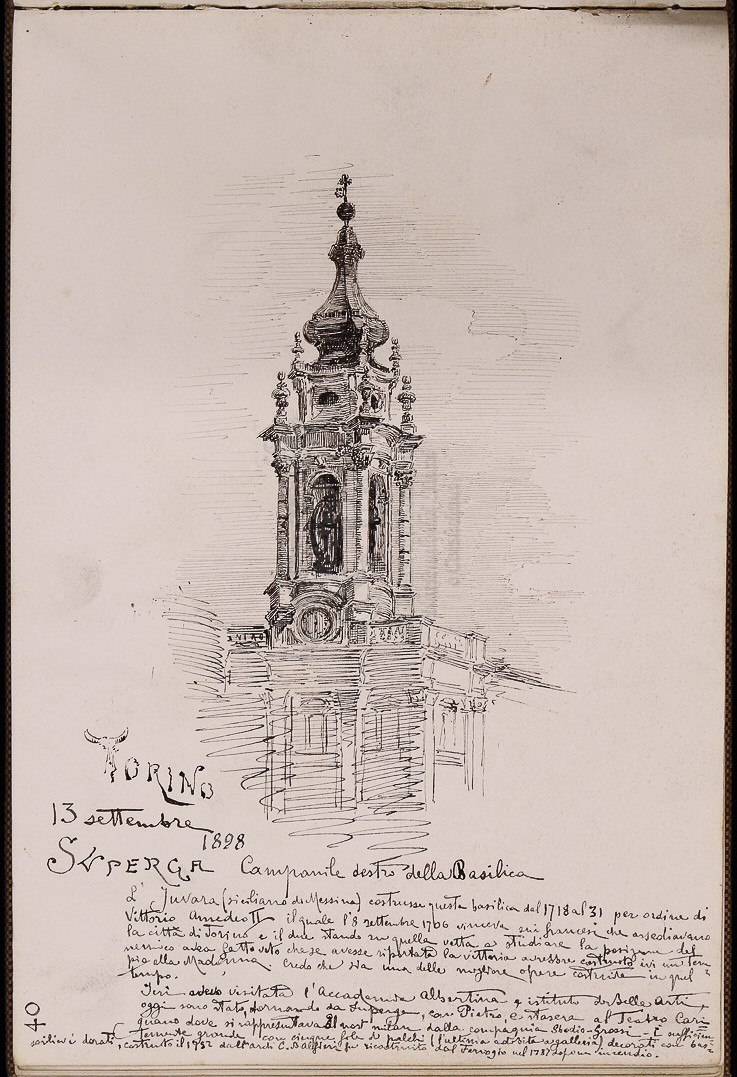 TORINO
13 settembre
1898
SUPERGA Campanile destro della Basilica
L' Juvara (siciliano di Messina) costrusse questa basilica dal 1718 al 31 per ordine di
Vittorio Amedeo II il quale l'8 settembre 1706 vinceva qui francesi che assediavano
la città di Torino e il duca stando su quella vetta a studiare la posizione del
nemico avea fatto voto che se avesse riportata la vittoria avrebbe costruito ivi un tem=
pio alla Madonna. Credo che sia una delle migliore opere costruite in quel
tempo.
Ieri avevo visitata l'Accademia Albertina e istituto di Belle Arti,
oggi sono stato, tornando da Superga, con Pietro, e stasera al Teatro Cari=
gnano dove si rappresentava dalla compagnia
È sufficien=
temente grande, con cinque file di palchi (l'ultima adibita a galleria) decorati con bas=
silievi dorati, costruito il dall'arch C. fu ricostruito dal Ferrogio nel 1787 dopo un incendio.
40